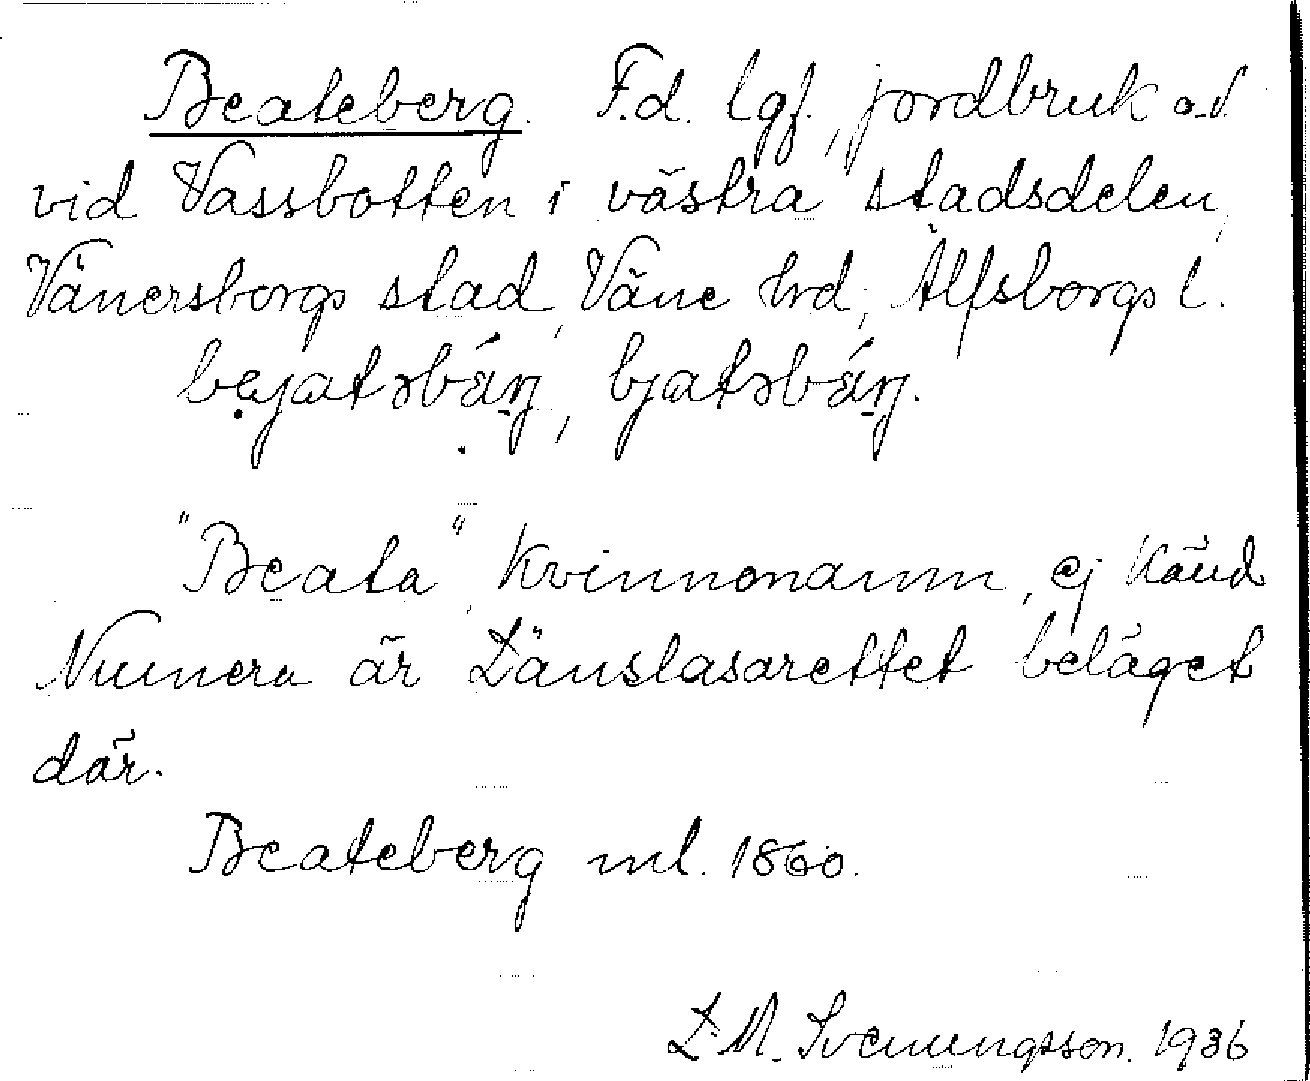 Beateberg. F.d. lgf., jordbruk o.d.
vid Vassbotten i västra stadsdelen,
Vänersborgs stad, Väne hrd, Älfsborgs l.
"Beata", kvinnonamn, ej känd
Numera är Länslasarettet beläget
där.
Beateberg ml. 1860.
L. M. Svenungsson. 1936